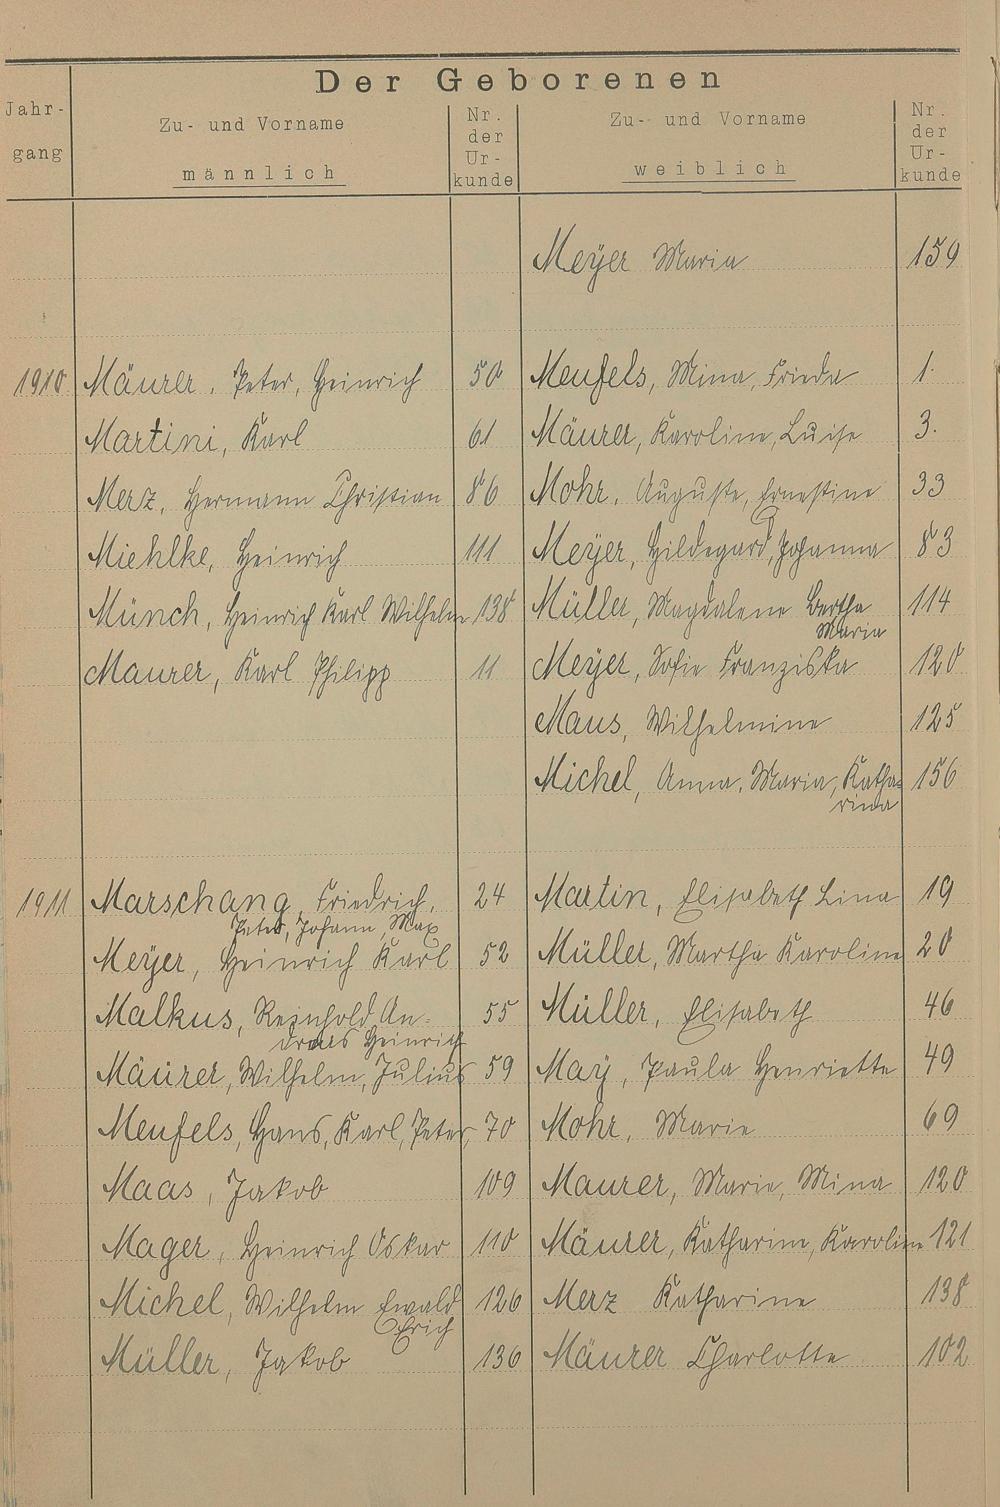 Der Geborenen
Jahr-
gang
Zu- und Vorname
männlich
Nr.
der
Ur-
kunde
Zu- und Vorname
weiblich
Nr.
der
Ur-
kunde
Meÿer Maria 159
1910 Mäurer, Peter, Heinrich 50 Menfels, Mina, Frieda 1.
Martini, Karl 61 Mäurer, Karoline, Luise 3.
Merz, Hermann Christian 86 Mohr, Auguste, Ernestine 33
Miehlke, Heinrich 111 Meÿer, Hildegard, Johanna 83
Münch, Heinrich Karl Wilhelm 138 Müller, Magdalene Bertha 114
Maria
Maurer, Karl Philipp 11 Meÿer, Sofie Franziska 120
Maus, Wilhelmine 125
Michel, Anna, Maria, Katha- 156
rina
1911 Marschang, Friedrich, 24 Martin, Elisabeth Lina 19
Peter, Johann, Max
Meÿer, Heinrich Karl 52 Müller, Martha Karoline 20
Malkus, Reinhold An- 55 Müller, Elisabeth 46
dreas Heinrich
Mäurer, Wilhelm, Julius 59 Maÿ, Paula Henriette 49
Menfels, Hans, Karl, Peter, 70 Mohr, Marie 69
Maas, Jakob 109 Maurer, Marie, Mina 120
Mager, Heinrich Oskar 110 Mäurer, Katharine, Karoline 121
Michel, Wilhelm Ewald 126 Merz Katharine 138
Erich
Müller, Jakob 136 Mäurer Charlotte 102